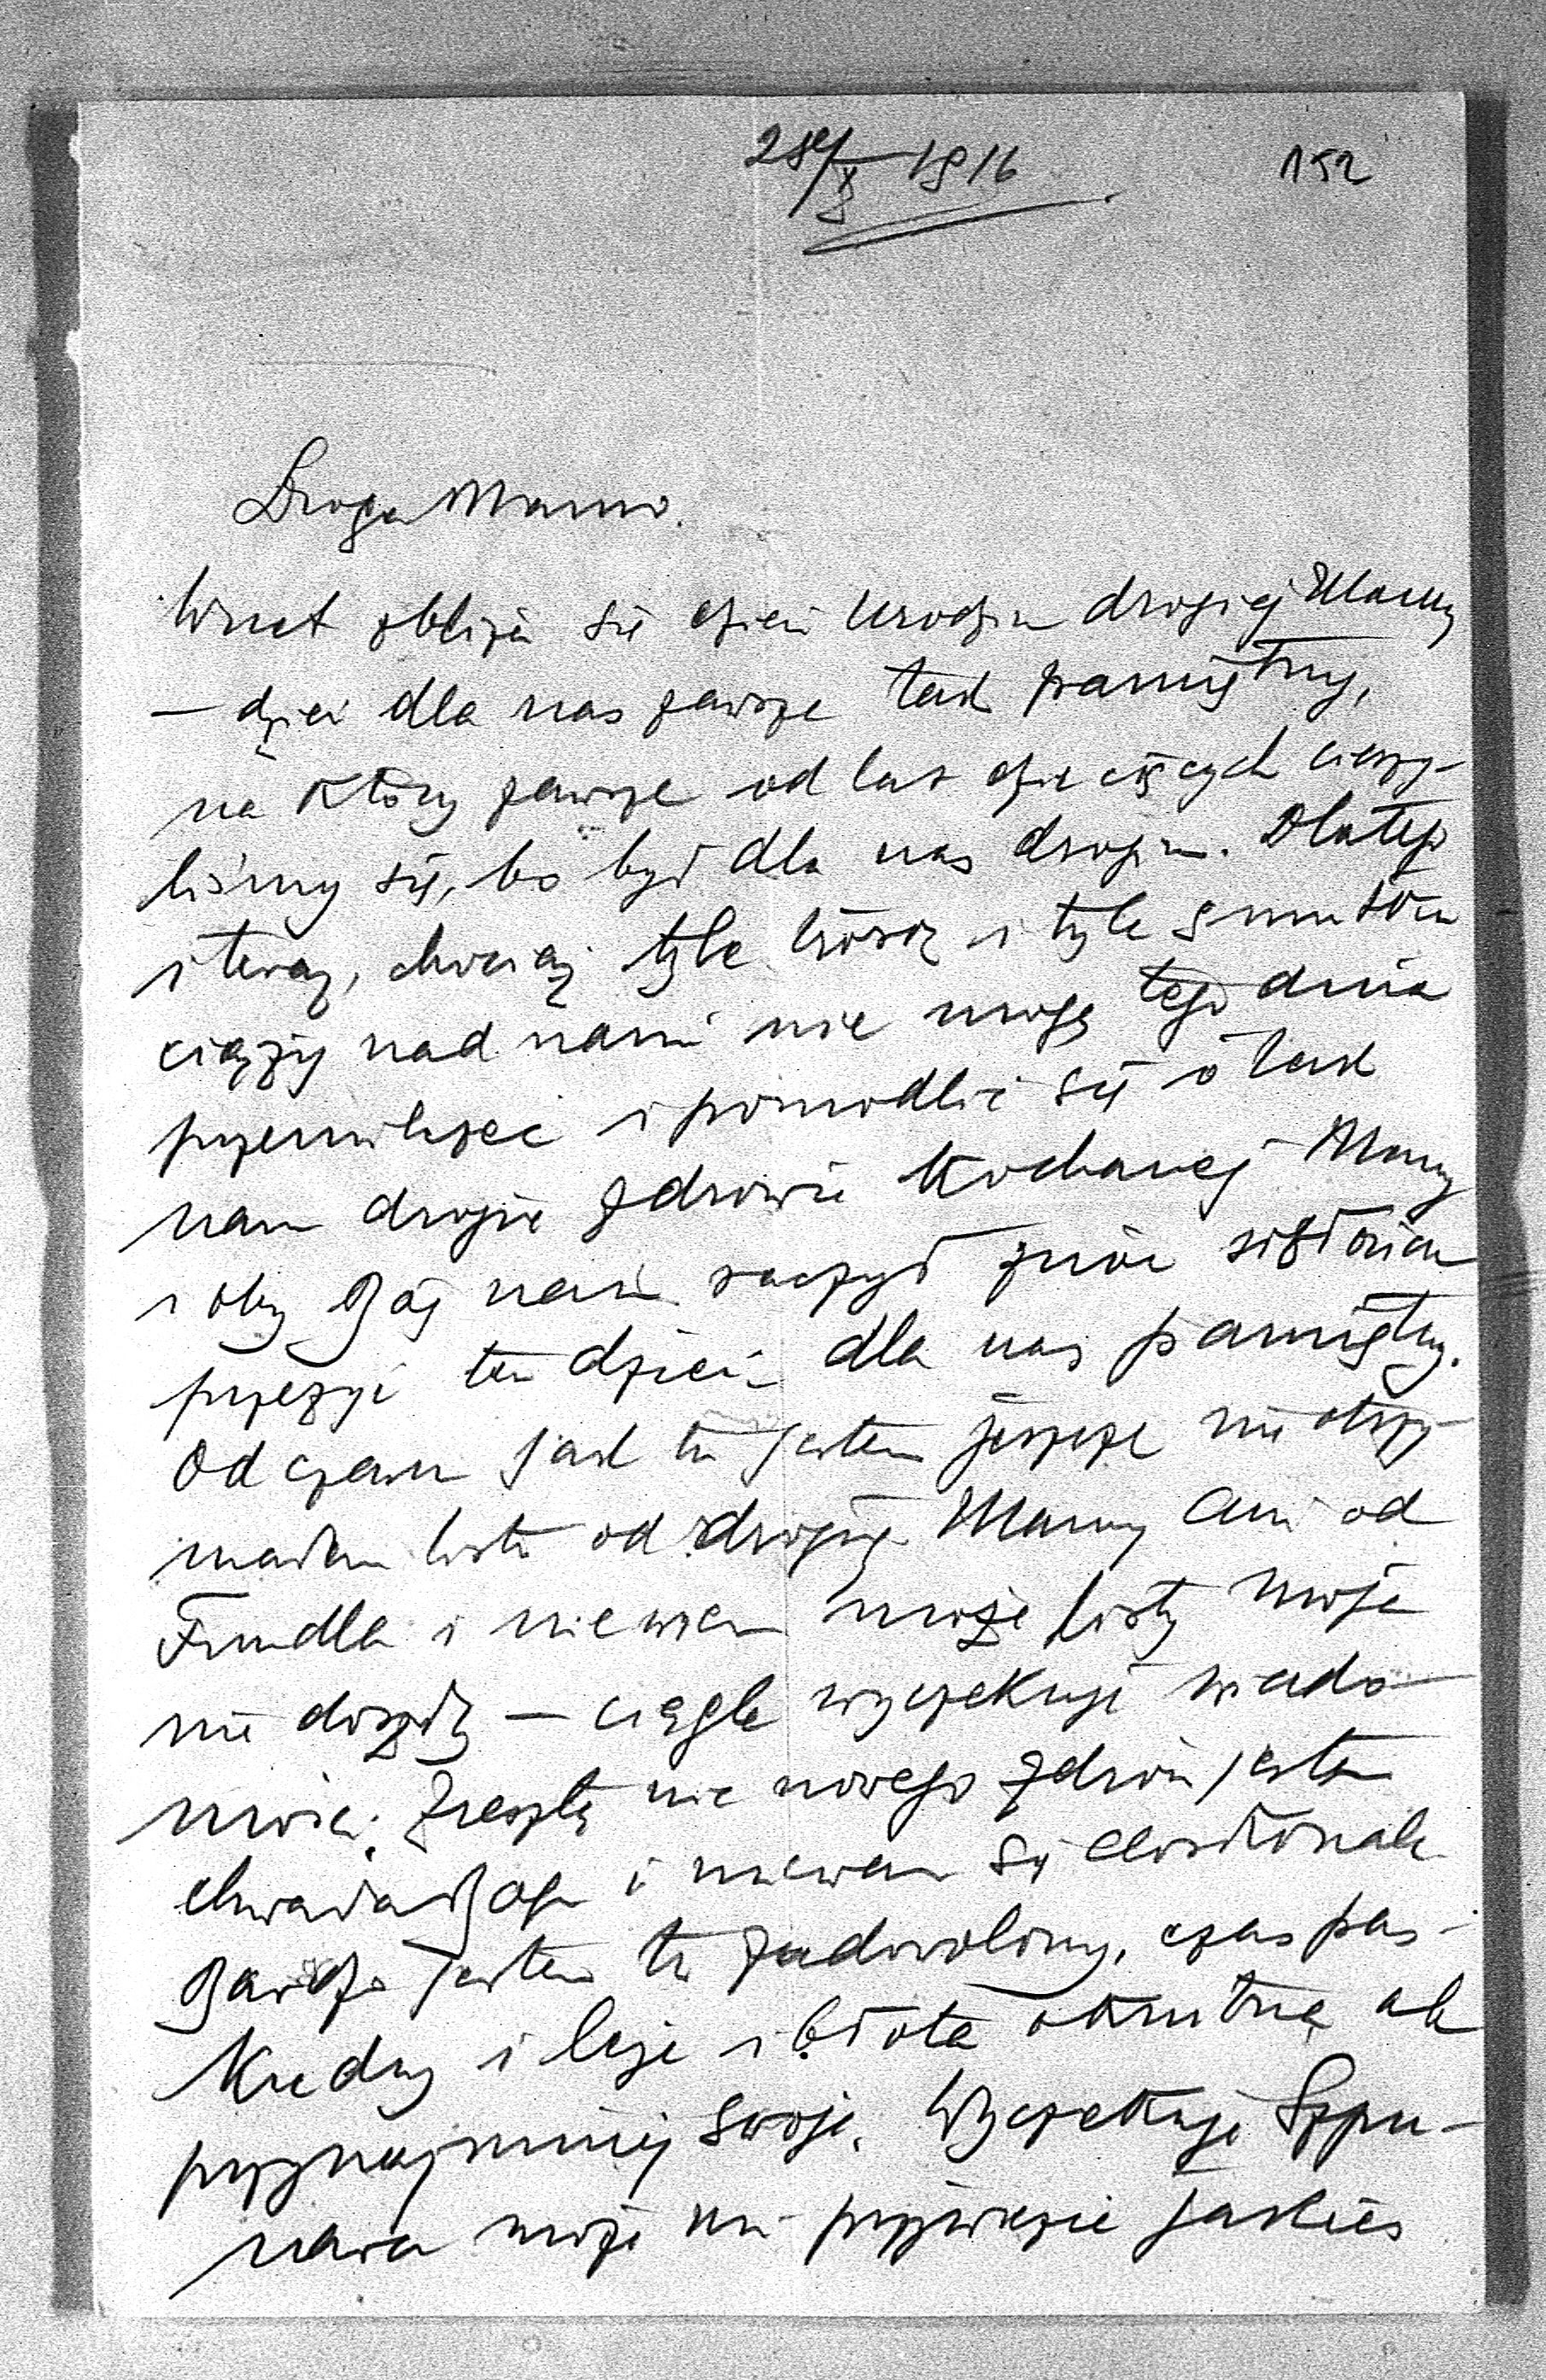 28/X 1916
152
Droga Mamo.
Wnet zbliża się dzień urodzin drogiej Mamy
— dzień dla nas zawsze tak pamiętny,
na który zawsze od lat dziecięcych cieszy-
liśmy się, bo był dla nas drogim. Dlatego
i teraz, chociaż tyle trosk i tyle smutków
ciąży nad nami nie mogę tego dnia
przemilczeć i pomodlić się o tak
nam drogie zdrowie Kochanej Mamy
i oby Bóg nam raczył znów
przeżyć ten dzień dla nas pamiętny.
Od czasu jak tu jestem jeszcze nie otrzy-
małem listu od drogiej Mamy ani od
Frundla i nie wiem może listy moje
nie doszły — ciągle wyczekuję wiado-
mości. Zresztą nic nowego zdrów jestem
chwała Bogu i miewam się doskonale
Bardzo jestem tu zadowolony, czas pas-
kudny i leje i błota okrutne ale
przynajmniej swoje. Wyczekuję Szpu-
nara może mi przywiezie jakieś